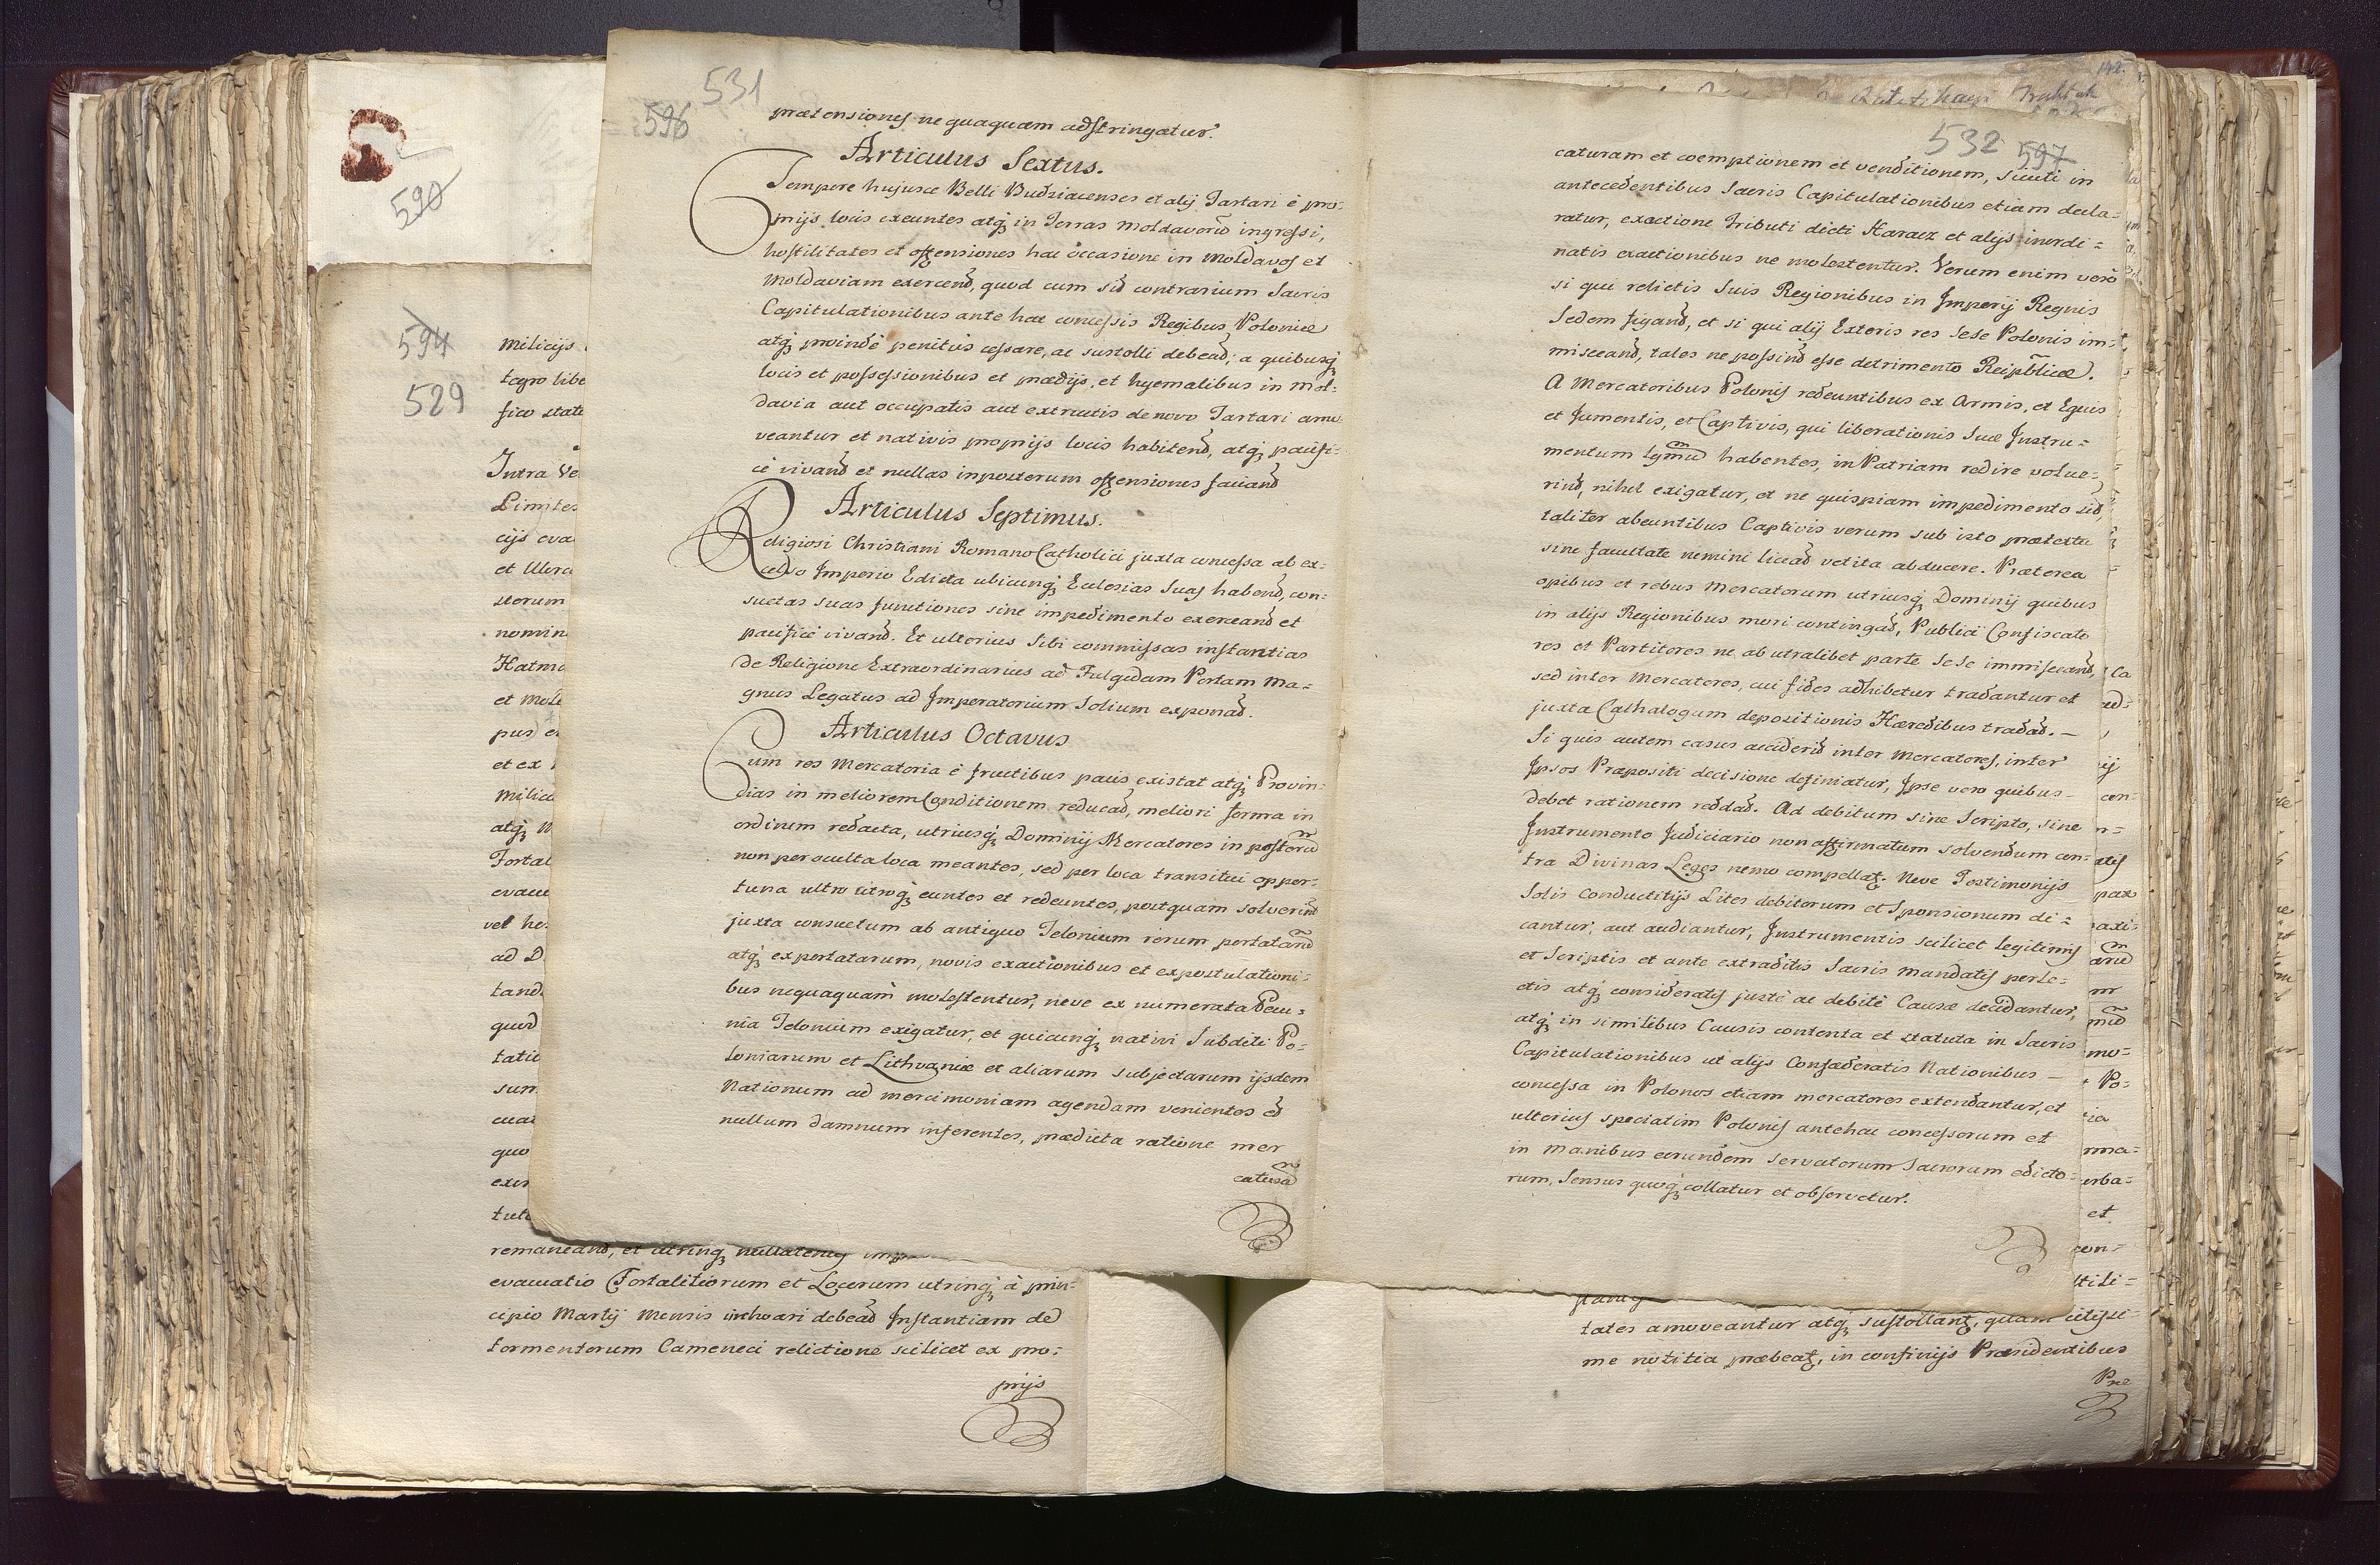 590
594
529
milicijs
tegro libe
fico stat
Intra Ve
Limites
cijs eva
et Ukra
storum
nomin
Hatma
et Mol
pus e
et ex
milic
atq3
Fortal
evacu
vel he
ad D
tand
quod
tatio
sum
cua
quo
exi
tut
remaneand, et utrinq3 nullatenus
evacuatio Fortalitiorum et Locorum utrinq3 à prin-
cipio Martij Mensis inchoari debead Instantiam de
tormentorum Cameneci relictione scilicet ex pro:
prijs
531
596
prætensiones ne quaquam adstringatur.
Articulus Sextus.
Tempore hujusce Belli Budziacenses et alij Tartari è pro-
prijs locis exeuntes atq3 in Terras Moldavorũ ingressi,
hostilitates et offensiones hac occasione in Moldavos et
Moldaviam exercend, quod cum sid contrarium Sacris
Capitulationibus ante hac concessis Regibus Poloniæ
atq3 proindè penitus cessare, ac sustolli debead; a quibusq3
locis et possessionibus et prædijs, et hyemalibus in Mol-
davia aut occupatis aut extructis de novo Tartari amo
veantur et nativis proprijs locis habitend, atq3 pacifi-
cè vivand et nullas inposterum offensiones faciand
Articulus Septimus.
Religiosi Christiani Romano Catholici juxta concessa ab ex-
celso Imperio Edicta ubicunq3 Ecclesias Suas habend, con-
suetas suas functiones sine impedimento exerceand et
pacificè vivand. Et ulterius Sibi commissas instantias
de Religione Extraordinarius ad Fulgidam Portam Ma-
gnus Legatus ad Imperatorium Solium exponad.
Articulus Octavus
Cum res Mercatoria è fructibus pacis existat atq3 Provin-
cias in meliorem Conditionem reducad, meliori forma in
ordinem redacta, utriusq3 Dominij Mercatores in posterũ
non per occulta loca meantes, sed per loca transitui oppor-
tuna ultro citroq3 euntes et redeuntes, postquam solverint
juxta consuetum ab antiquo Telonium rerum portatarũ
atq3 exportatarum, novis exactionibus et expostulationi-
bus nequaquam molestentur, neve ex numerata Pecu-
nia Telonium exigatur, et quicunq3 nativi Subditi Po-
loniarum et Lithvaniæ et aliarum subjectarum ijsdem
Nationum ad mercimoniam agendam venientes ed
nullum damnum inferentes, prædicta ratione mer
caturã
532 597
caturam et coemptionem et venditionem, sicuti in
antecedentibus Sacris Capitulationibus etiam decla-
ratur, exactione Tributi dicti Haracz et alijs inordi-
natis exactionibus ne molestentur. Verum enim verò
si qui relictis Suis Regionibus in Imperij Regnis
Sedem figand, et si qui alij Exteris res Sese Polonis im-
misceand, tales ne possind esse detrimento Reipblicæ.
A Mercatoribus Polonis redeuntibus ex Armis, et Equis
et Jumentis, et Captivis, qui liberationis Suæ Instru-
mentum lgmũ habentes, in Patriam redire volue-
rind, nihil exigatur, et ne quispiam impedimento sid,
taliter abeuntibus Captivis verum sub isto prætextu
sine facultate nemini licead vetita abducere. Præterea
opibus et rebus Mercatorum utriusq3 Dominij quibus
in alijs Regionibus mori contingad, Publici Confiscato
res et Partitores ne ab utralibet parte Sese immisceand,
sed inter Mercatores, cui fides adhibetur tradantur et
juxta Cathalogum depositionis Hæredibus tradad.
Si quis autem casus acciderid inter Mercatores, inter
Ipsos Præpositi decisione definiatur, Ipse vero quibus
debet rationem reddad. Ad debitum sine Scripto, sine
Instrumento Judiciario non affirmatum solvendum con-
tra Divinas Leges nemo compellat. Neve Testimonijs
Solis Conductitijs Lites debitorum et Sponsionum di-
cantur, aut audiantur, Instrumentis scilicet legitimis
et Scriptis et ante extraditis Sacris Mandatis perle-
ctis atq3 consideratis justè ac debitè Causæ decidantur,
atq3 in similibus Causis contenta et statuta in Sacris
Capitulationibus ut alijs Confæderatis Nationibus
concessa in Polonos etiam mercatores extendantur, et
ulterius speciatim Polonis antehac concessorum et
in manibus eorundem servatorum Sacrorum edicto-
rum, Sensus quoq3 collatur et observetur.
tates amoveantur atq3 sustollant, quam citissi-
me notitia præbeat, in confinijs Præsidentibus
Præ